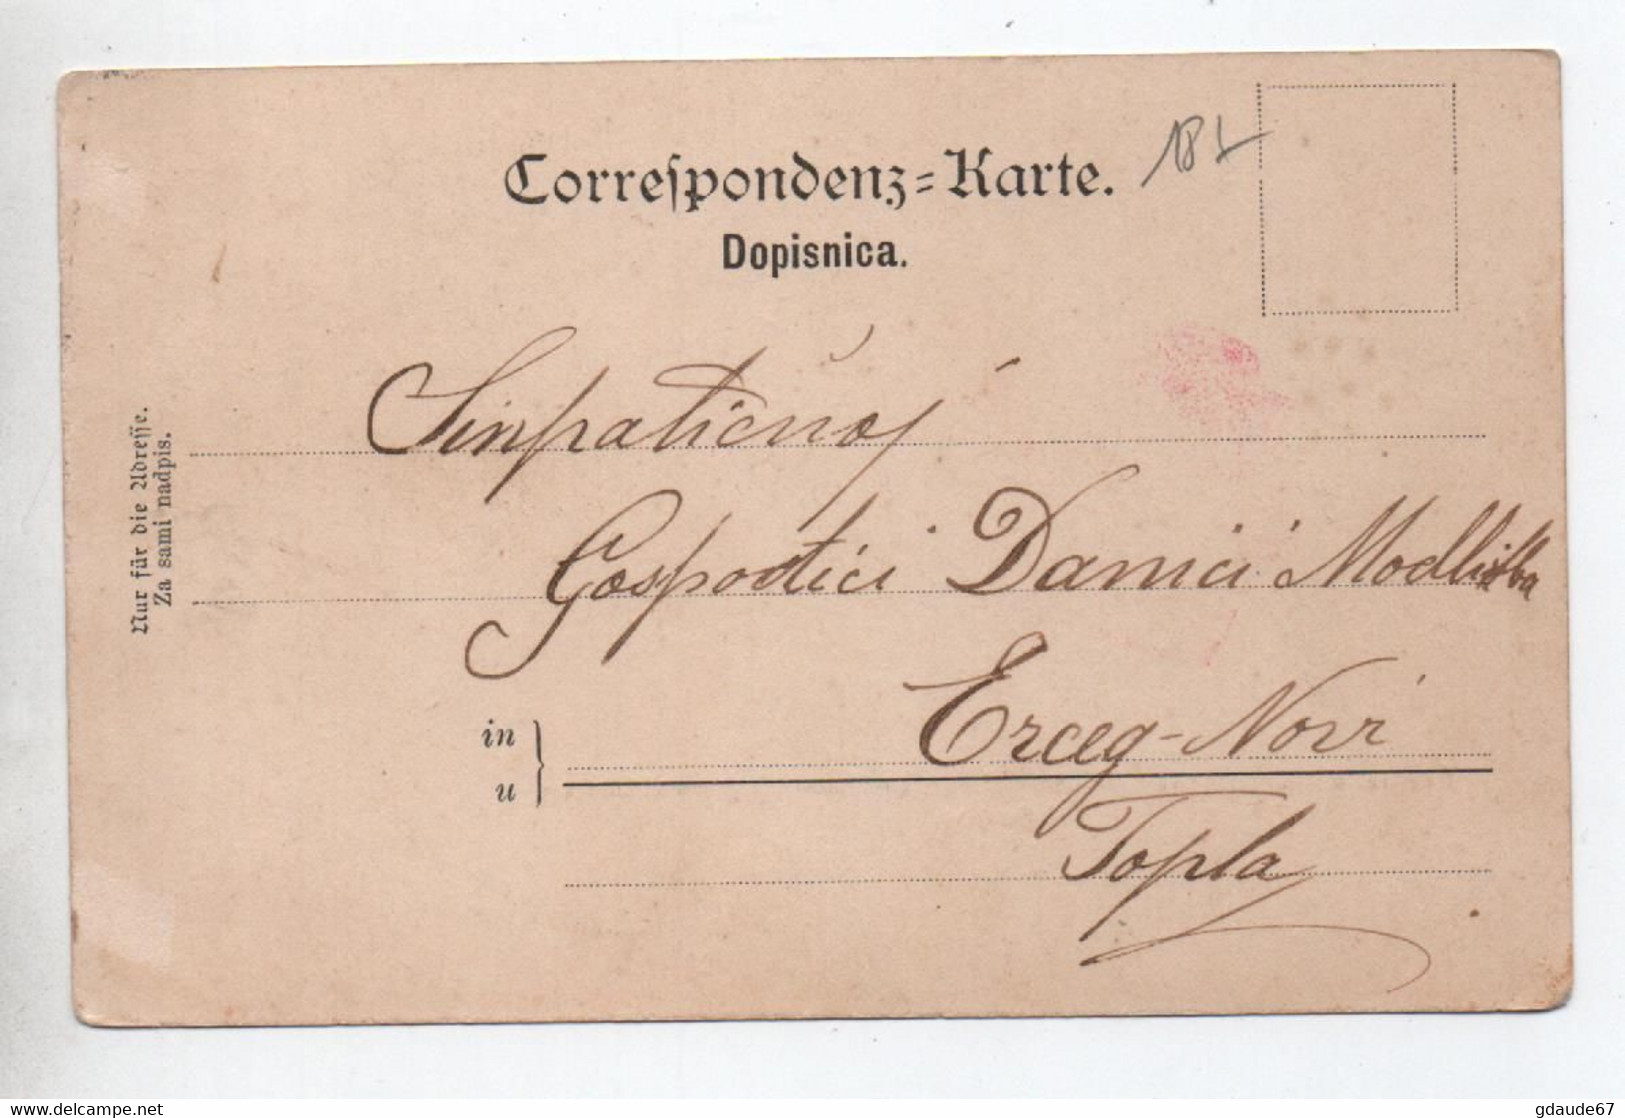 Correſpondenz=Karte.
Dopisnica.
Nur für die Adreſſe.
Za sami nadpis.
Sinpatičnoj
Gospođici Danici
Erceg-Novi
in
u
Topla
delcampe.net
gdaude67